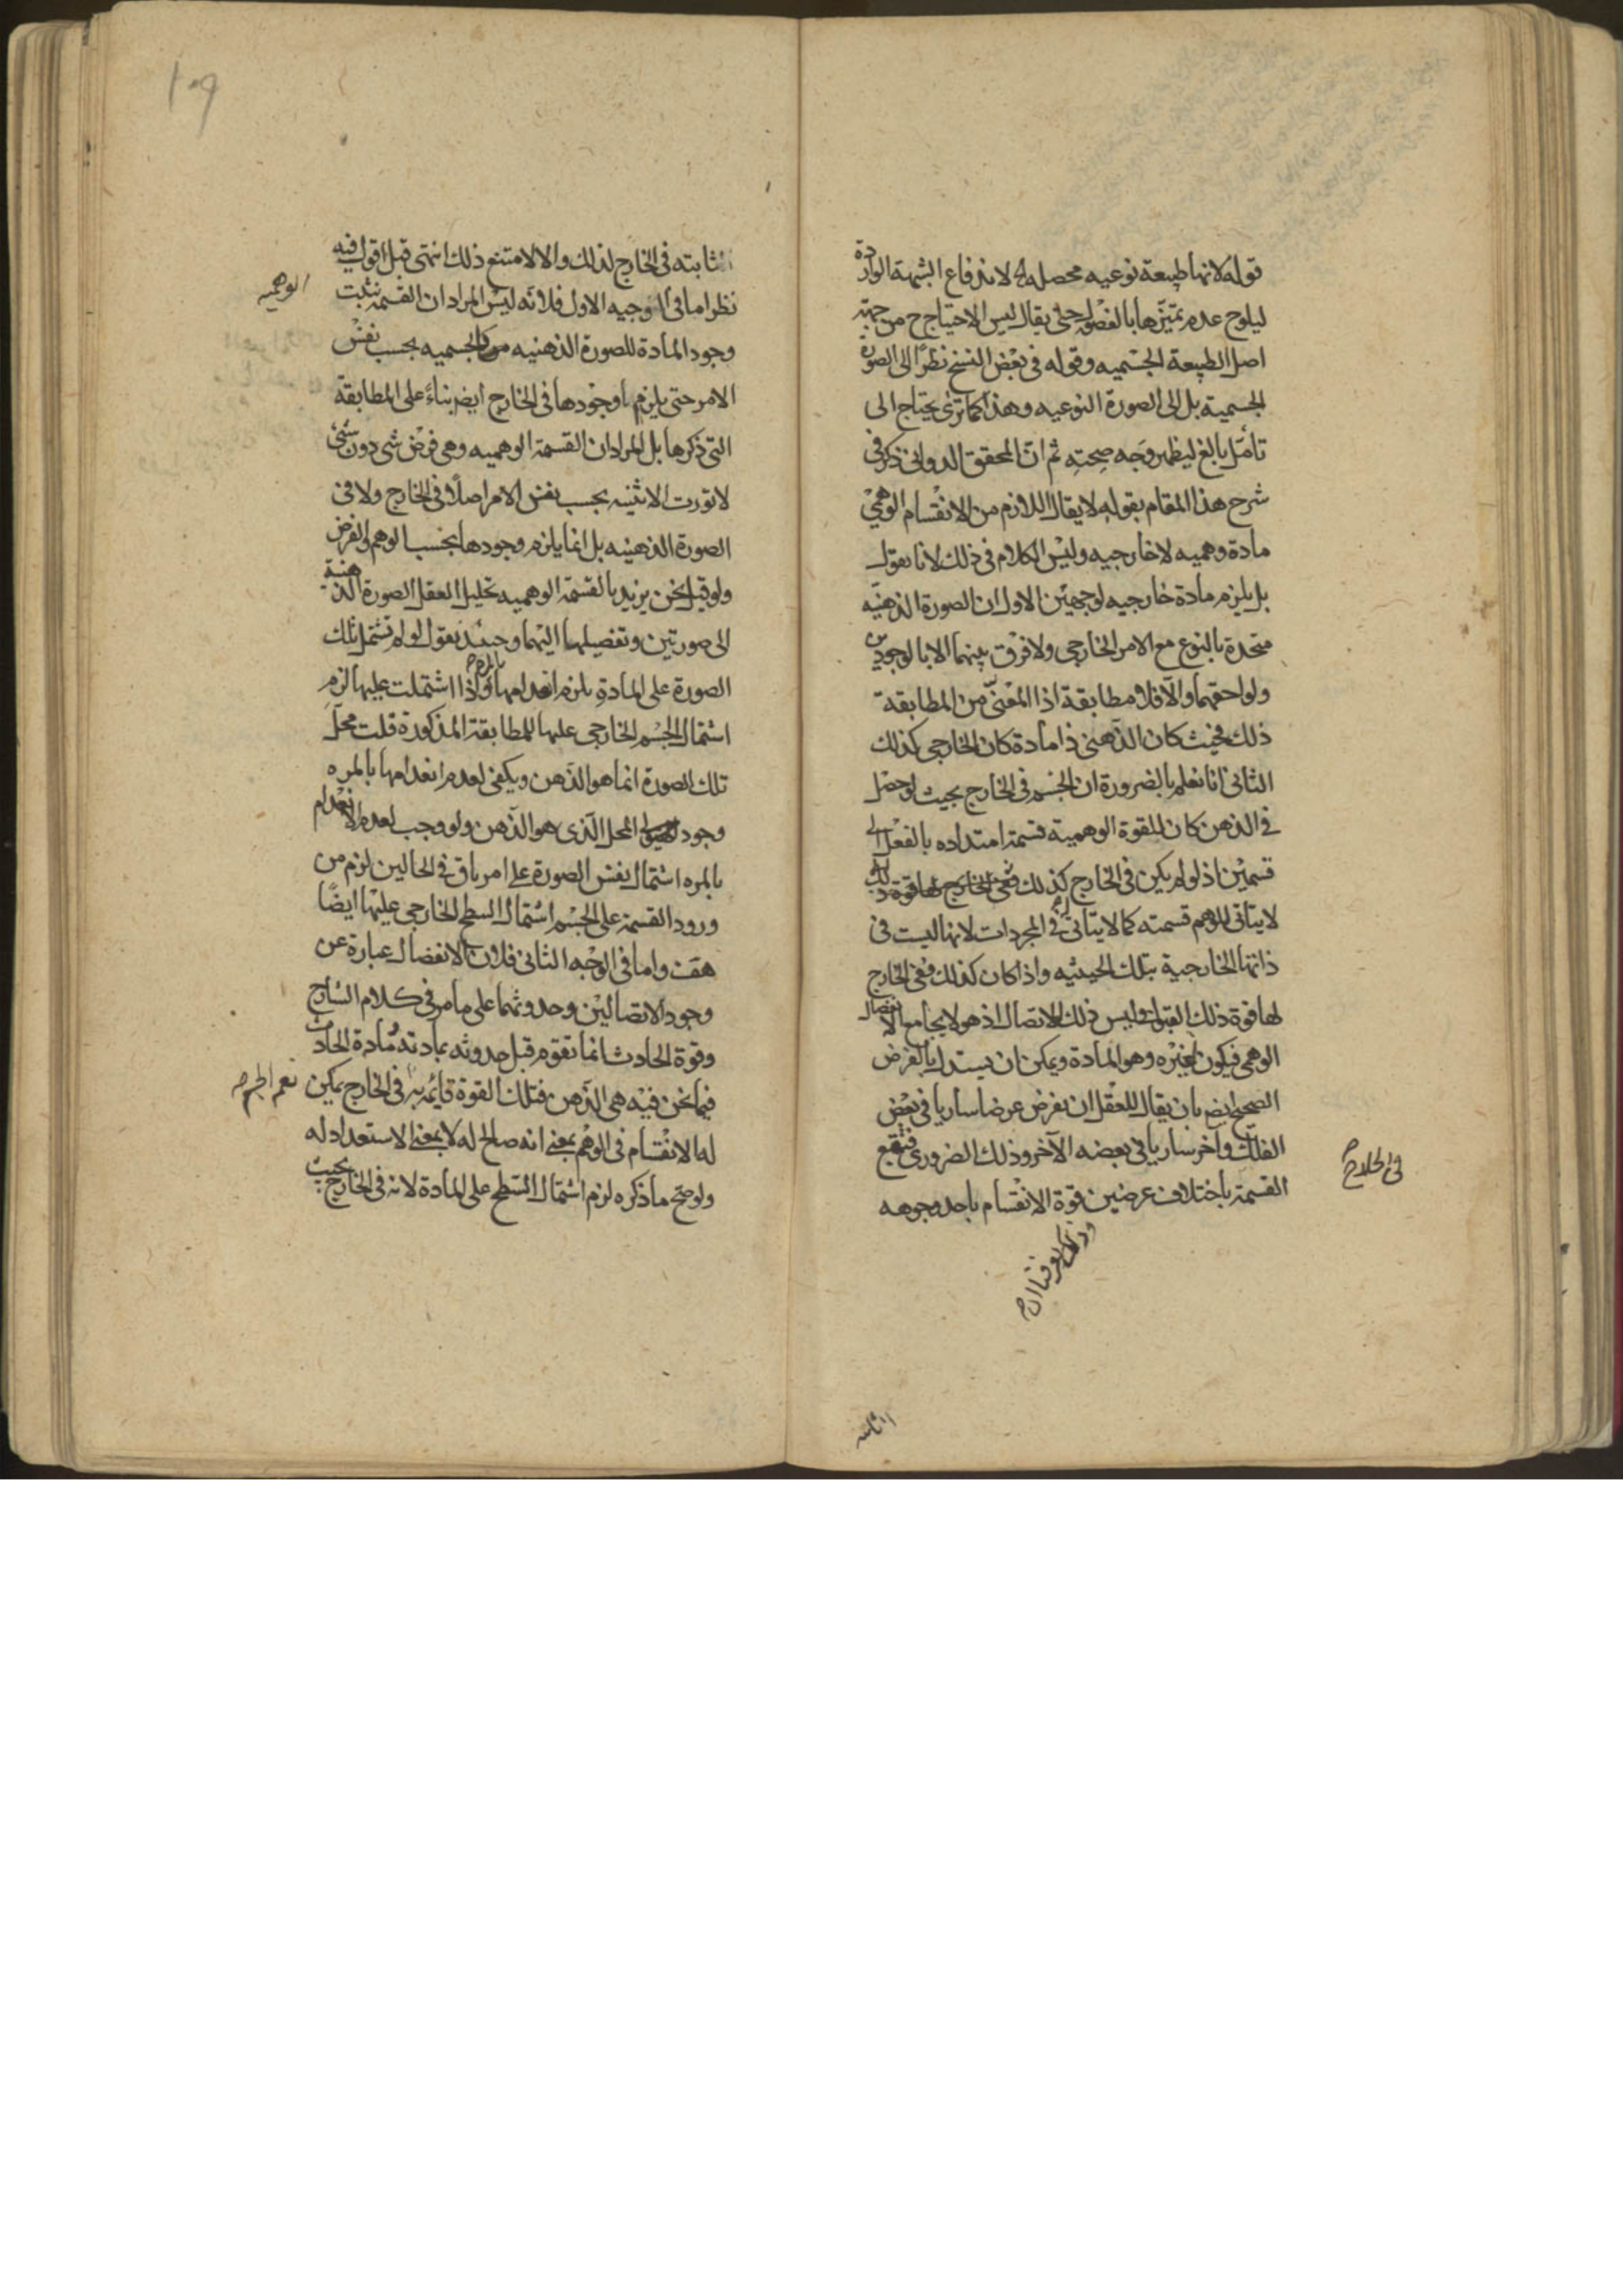 قوله لانها طبيعة نوعيه محصله لاندفاع الشبهة الواردة
ليلوح عدم تميزها بالفصول حتى يقال ليس الاحتياج ح من جهة
اصل الطبيعة الجسميه وقوله فى بعض النسخ نظرا الى الصورة
الجسمية بل الى الصورة النوعيه وهذا كما ترى يحتاج الى
تأمل بالغ ليظهر وجه صحته ثم ان المحقق الدوانى ذكر فى
شرح هذا المقام بقوله لا يقال اللازم من الانقسام الوهمى
مادة وهميه لا خارجيه وليس الكلام فى ذلك لانا نقول
بل يلزم مادة خارجيه لوجهين الاول ان الصورة الذهنيه
متحدة بالنوع مع الامر الخارجى ولا فرق بينهما الا بالوجودين
ولواحقهما والا فلا مطابقة اذا المعنى من المطابقة
ذلك فحيث كان الذهنى ذا مادة كان الخارجى كذلك
الثانى انا نعلم بالضرورة ان الجسم فى الخارج بحيث لو حصل
فى الذهن كان للقوة الوهمية قسمة امتداده بالفعل الى
قسمين اذ لو لم يكن فى الخارج كذلك
لا يتأتى للوهم قسمته كما لا يتأتى فى المجردات لانها ليست فى
ذاتها الخارجية بتلك الحيثيه واذا كان كذلك ففى الخارج
لها قوة ذلك القبول وليس ذلك للاتصال اذ هو لا يجامع الانفصال
الوهمى فيكون لغيره وهو المادة ويمكن ان يستدل بالفرض
الصحيح ايض بان يقال للعقل ان يفرض عرضا ساريا فى بعض
الفلك وآخر ساريا فى بعضه الآخر وذلك الضرورى فتقع
القسمة باختلاف عرضين قوة الانقسام باحد وجوهه
فى الخارج
الثابته
ثابته فى الخارج لذلك والا لامتنع ذلك انتهى قبل اقول فيه
نظر اما فى الوجيه الاول فلانه ليس المراد ان القسمة تثبت
الوهميه
وجود المادة للصورة الذهنيه الجسميه بحسب نفس
الامر حتى يلزم وجودها فى الخارج ايض بناء على المطابقة
التى ذكرها بل المراد ان القسمة الوهميه وهى فرض شى دون شئ
لا تورث الاثنينيه بحسب نفس الامر اصلا لا فى الخارج ولا فى
الصورة الذهنيه بل انما يلزم وجودها بحسب الوهم والفرض
ولو قيل نحن نريد بالقسمة الوهميه تحليل العقل الصورة الذهنية
الى صورتين وتفصيلها اليهما وحينئذ نقول لو لم تشتمل تلك
الصورة على المادة يلزم انعدامها بالمره واذا اشتملت عليها لزم
اشتمال الجسم الخارجى عليها للمطابقة المذكورة قلت محل
تلك الصورة انما هو الذهن ويكفى لعدم انعدامها بالمره
وجود المحل الذى هو الذهن ولو وجب لعدم الانعدام
بالمره اشتمال نفس الصورة على امر باق فى الحالين لزم من
ورود القسمة على الجسم اشتمال السطح الخارجى عليها ايضا
هف واما فى الوجه الثانى فلان الانفصال عبارة عن
وجود الاتصالين وحدوثهما على ما مر فى كلام الشارح
وقوة الحادث انما تقوم قبل حدوثه بمادته ومادة الحادث
فيما نحن فيه هى الذهن فتلك القوة قايمه به فى الخارج يمكن
نعم الجسم
له الانقسام فى الوهم بمعنى انه صالح له لا بمعنى الاستعداد له
ولو صح ما ذكره لزم اشتمال السطح على المادة لانه فى الخارج بحيث